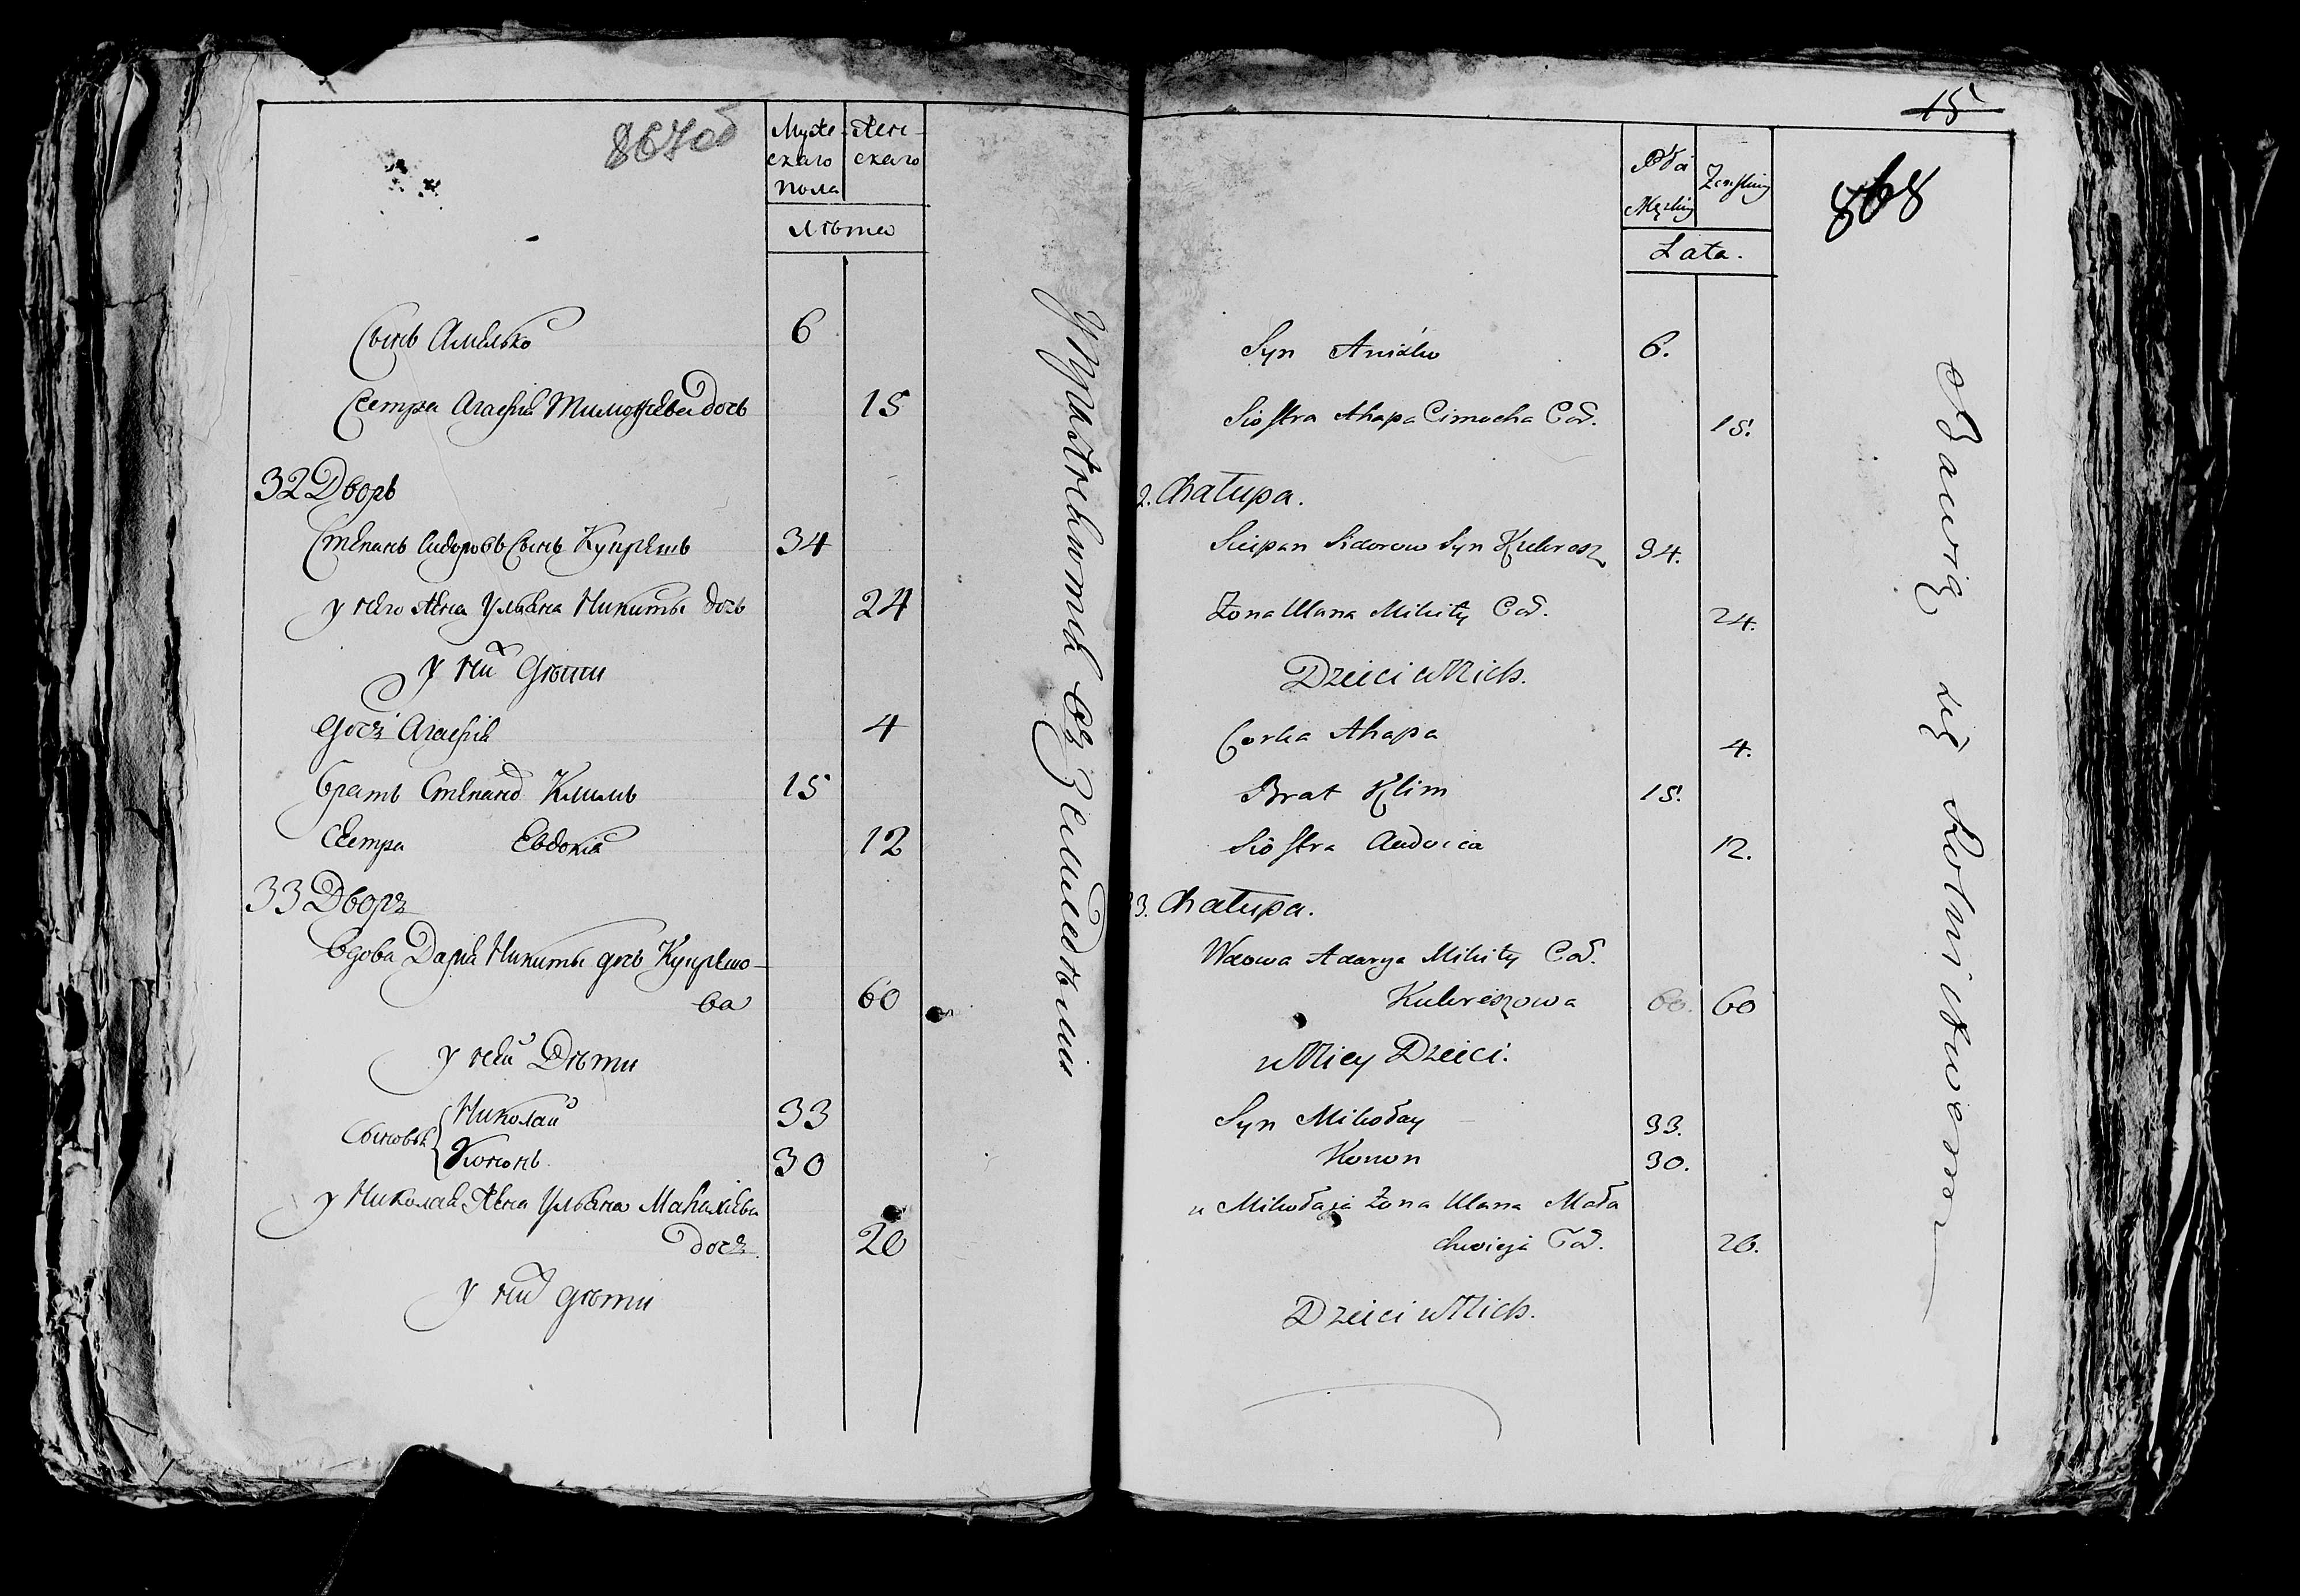 867об
Муже- Жен-
скаго скаго
пола
Лѣта
Сынъ Амелько 6
Сестра Агафия Тимофеева дочь 15
32 Дворъ
Степанъ Сидоровъ Сынъ Купрешъ 34
у него жена Ульяна Никиты дочь 24
у них дети
дочь Агафия 4
братъ Степана Климъ 15
Сестра Евдокия 12
33 Дворъ
Вдова Дария Никиты дочь Купрешо-
ва 60
у ней Дѣти
Сыновья Николай 33
Кононъ 30
у Николая жена Ульяна Малахиева
дочь 20
у них дѣти
Упражняются в Земледѣлии
15
868
Płci
Męzkiey Zeńskiey
Lata.
Syn 6.
Siostra Ahapa Cimocha Cod. 15.
2. Chałupa.
Sciepan Sidorow Syn Kubresz 34.
Zona Ulana Mikity Cod. 24.
Dzieci u Nich.
Corka Ahapa 4.
Brat Klim 15.
Siostra Audocia 12.
33. Chałupa.
Wdowa Adarya Mikity Cod.
Kubreszowa 60. 60
u Niey Dzieci.
Syn Mikołay 33.
Konon 30.
u Mikołaja Zona Ulana Mała
chwieja Cod. 20.
Dzieci u Nich.
Bawią się Rolnictwem